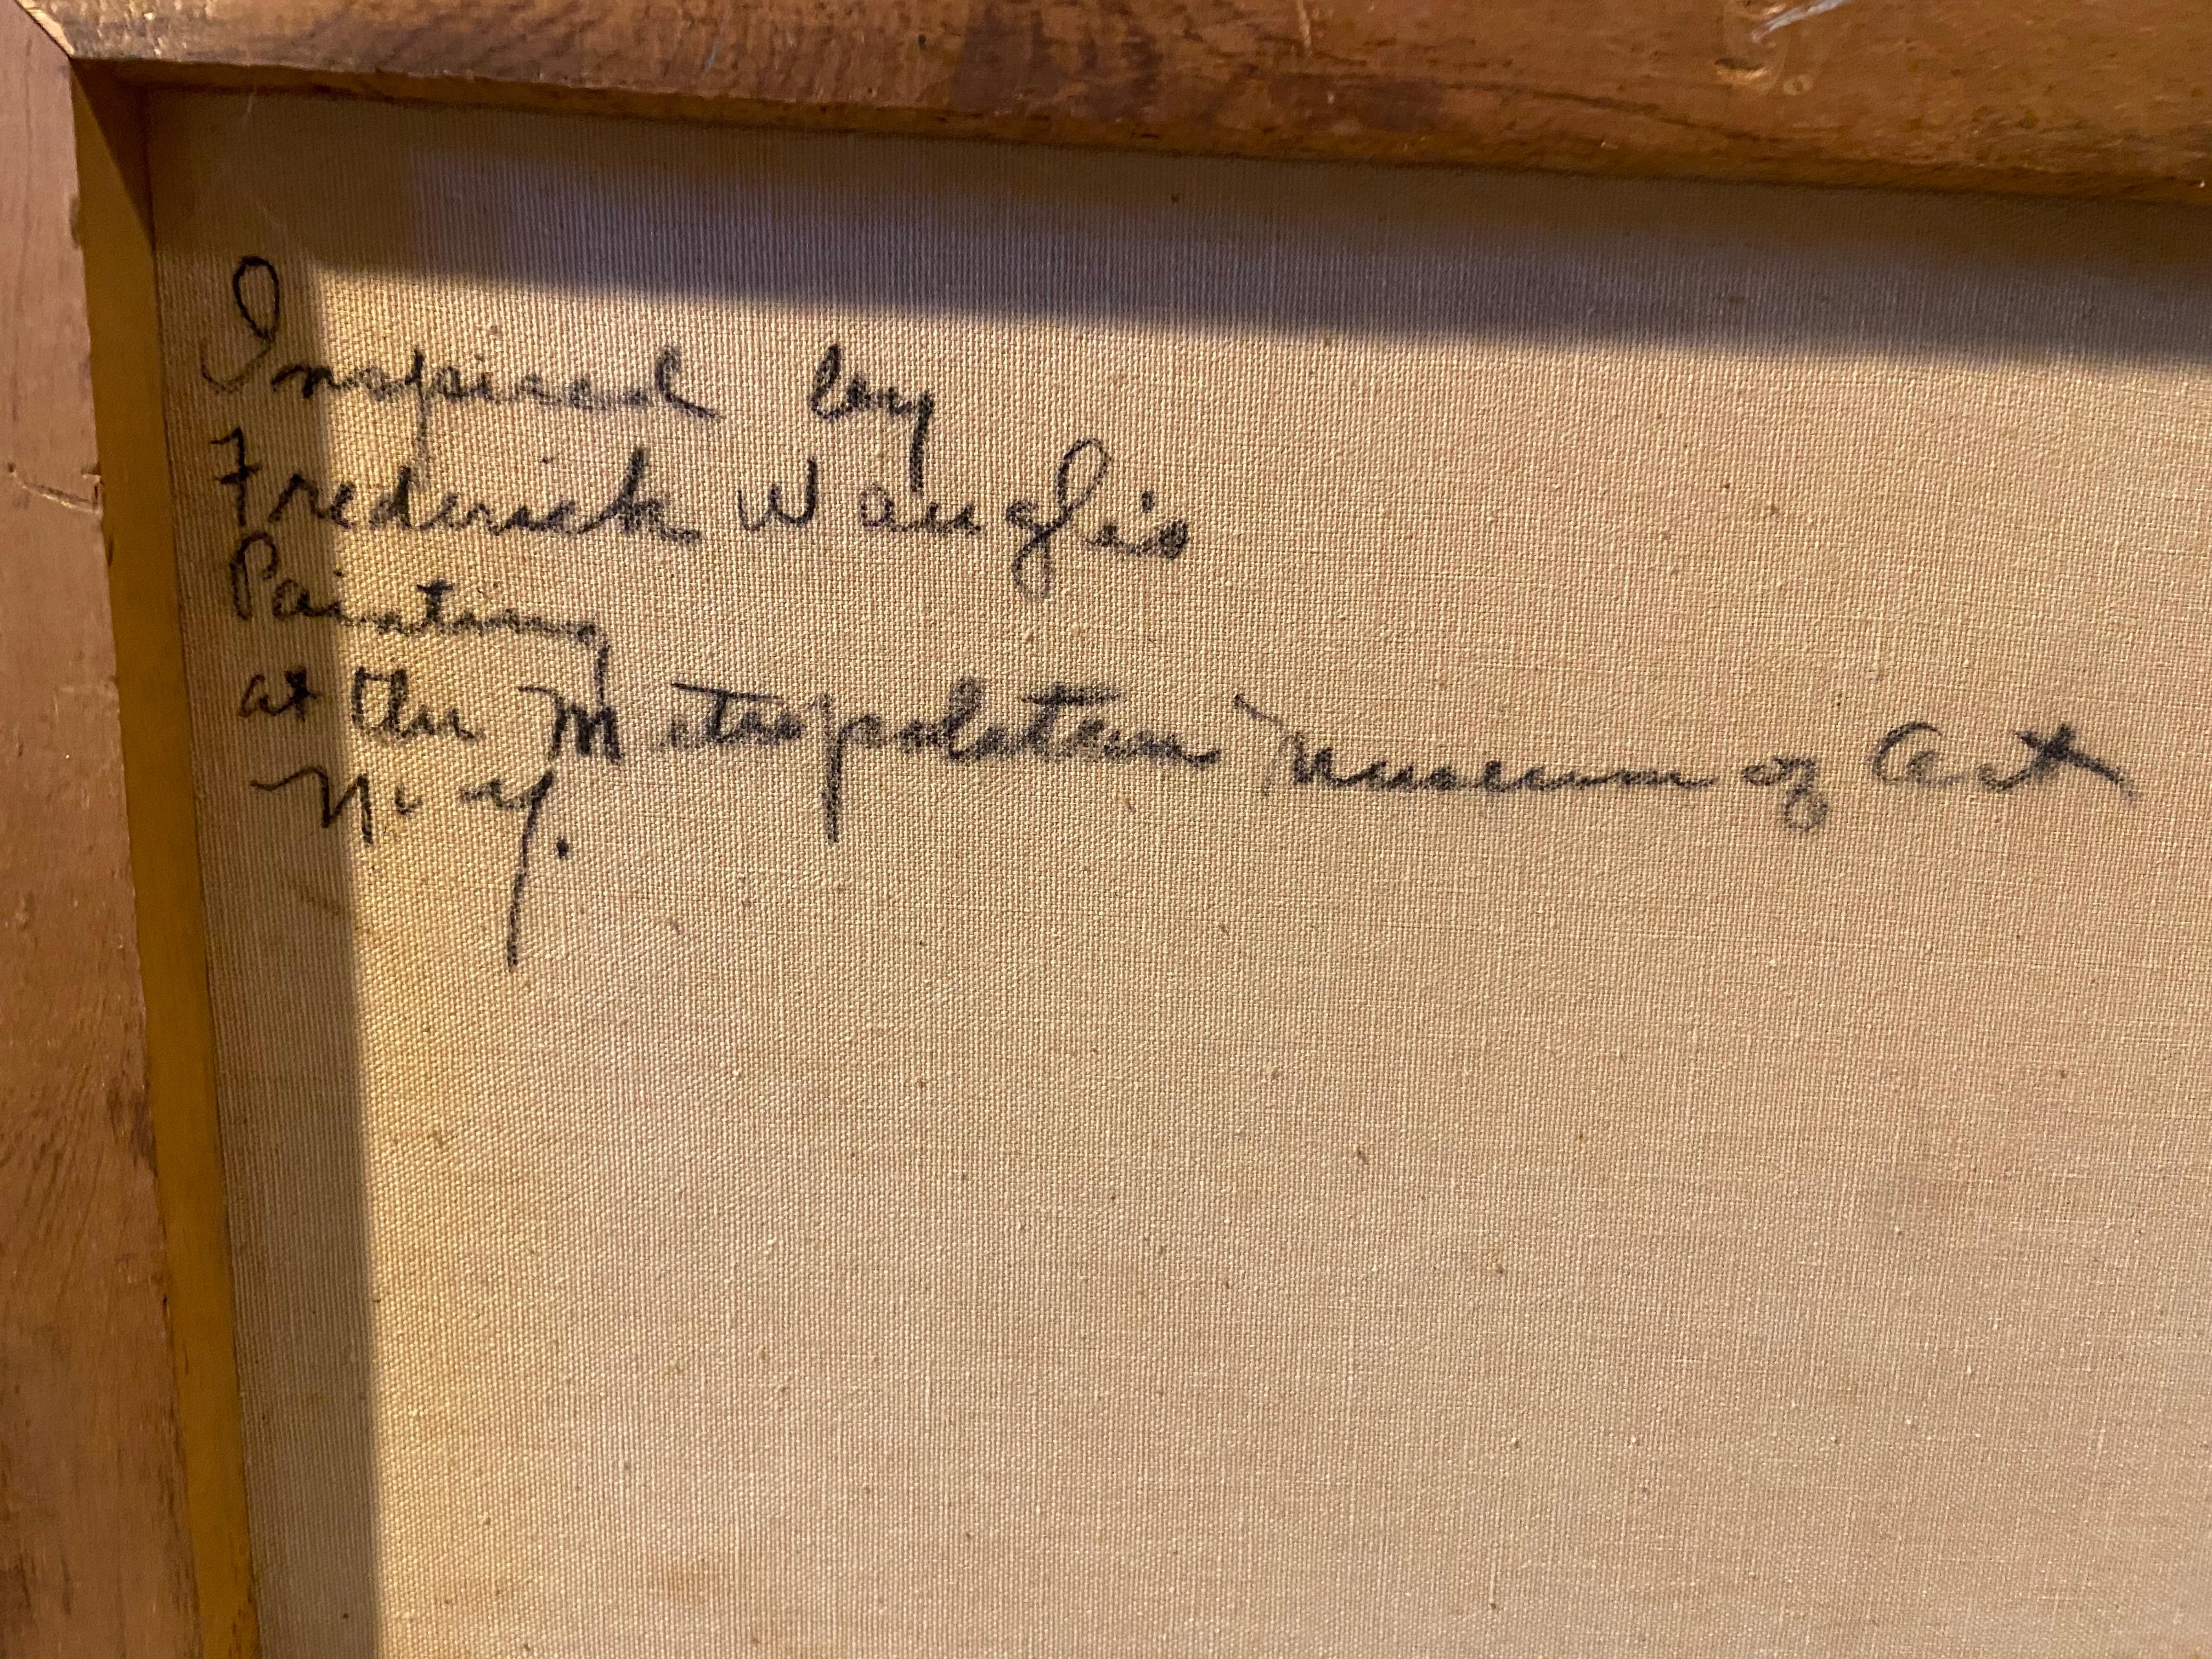 Inspired by
Frederick Waugh's
Painting
at the Metropolitan Museum of Art
N.Y.